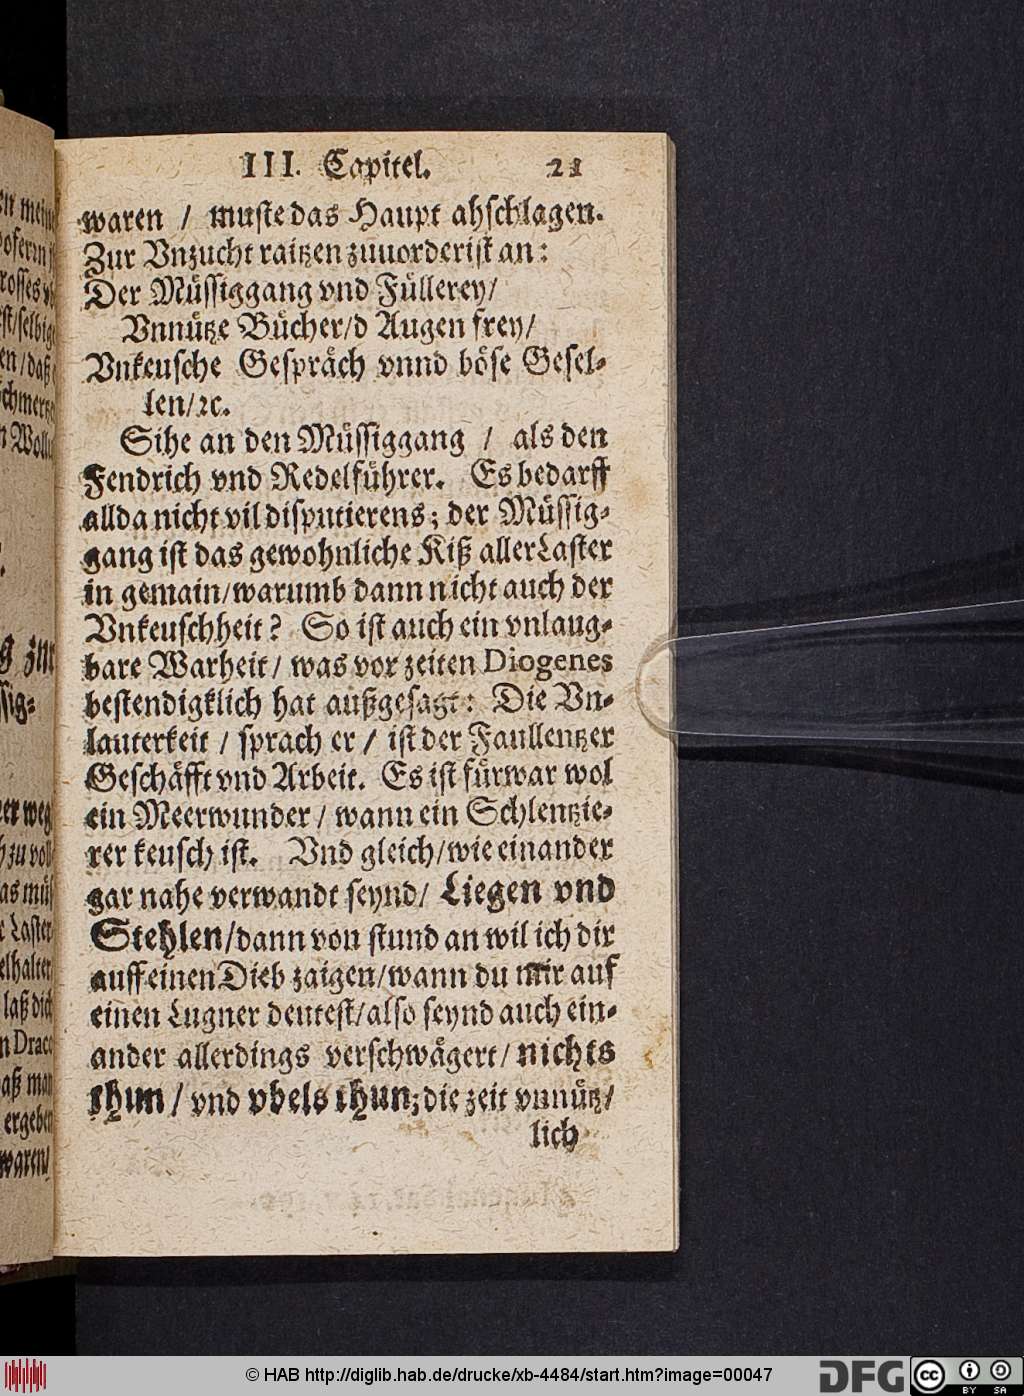 III. Capitel. 21
waren / muste das Haupt abschlagen.
Zur Vnzucht raitzen zuuorderist an:
Der Müssiggang vnd Füllerey/
Vnnütze Bücher/d Augen frey/
Vnkeusche Gespräch vnnd böse Gesel-
len/ꝛc.
Sihe an den Müssiggang / als den
Fendrich vnd Redelführer. Es bedarff
allda nicht vil disputierens; der Müssig-
gang ist das gewohnliche Kiß aller Laster
in gemain/warumb dann nicht auch der
Vnkeuschheit? So ist auch ein vnlaug-
bare Warheit/ was vor zeiten Diogenes
bestendigklich hat außgesagt: Die Vn-
lauterkeit / sprach er / ist der Faullentzer
Geschäfft vnd Arbeit. Es ist fürwar wol
ein Meerwunder / wann ein Schlentzie-
rer keusch ist. Vnd gleich/wie einander
gar nahe verwandt seynd/ Liegen vnd
Stehlen/dann von stund an wil ich dir
auff einen Dieb zaigen/wann du mir auf
einen Lugner deutest/also seynd auch ein-
ander allerdings verschwägert/ nichts
thun / vnd vbels thun; die zeit vnnütz/
lich
en mein
rosses
est/selbige
en/daß
chmertz
g zur
ssig-
er weg
h zu vol
as müs
e Laster
elhalter
laß dich
n Draco
aß man
ergeben
waren/
© HAB http://diglib.hab.de/drucke/xb-4484/start.htm?image=00047
DFG
cc BY SA